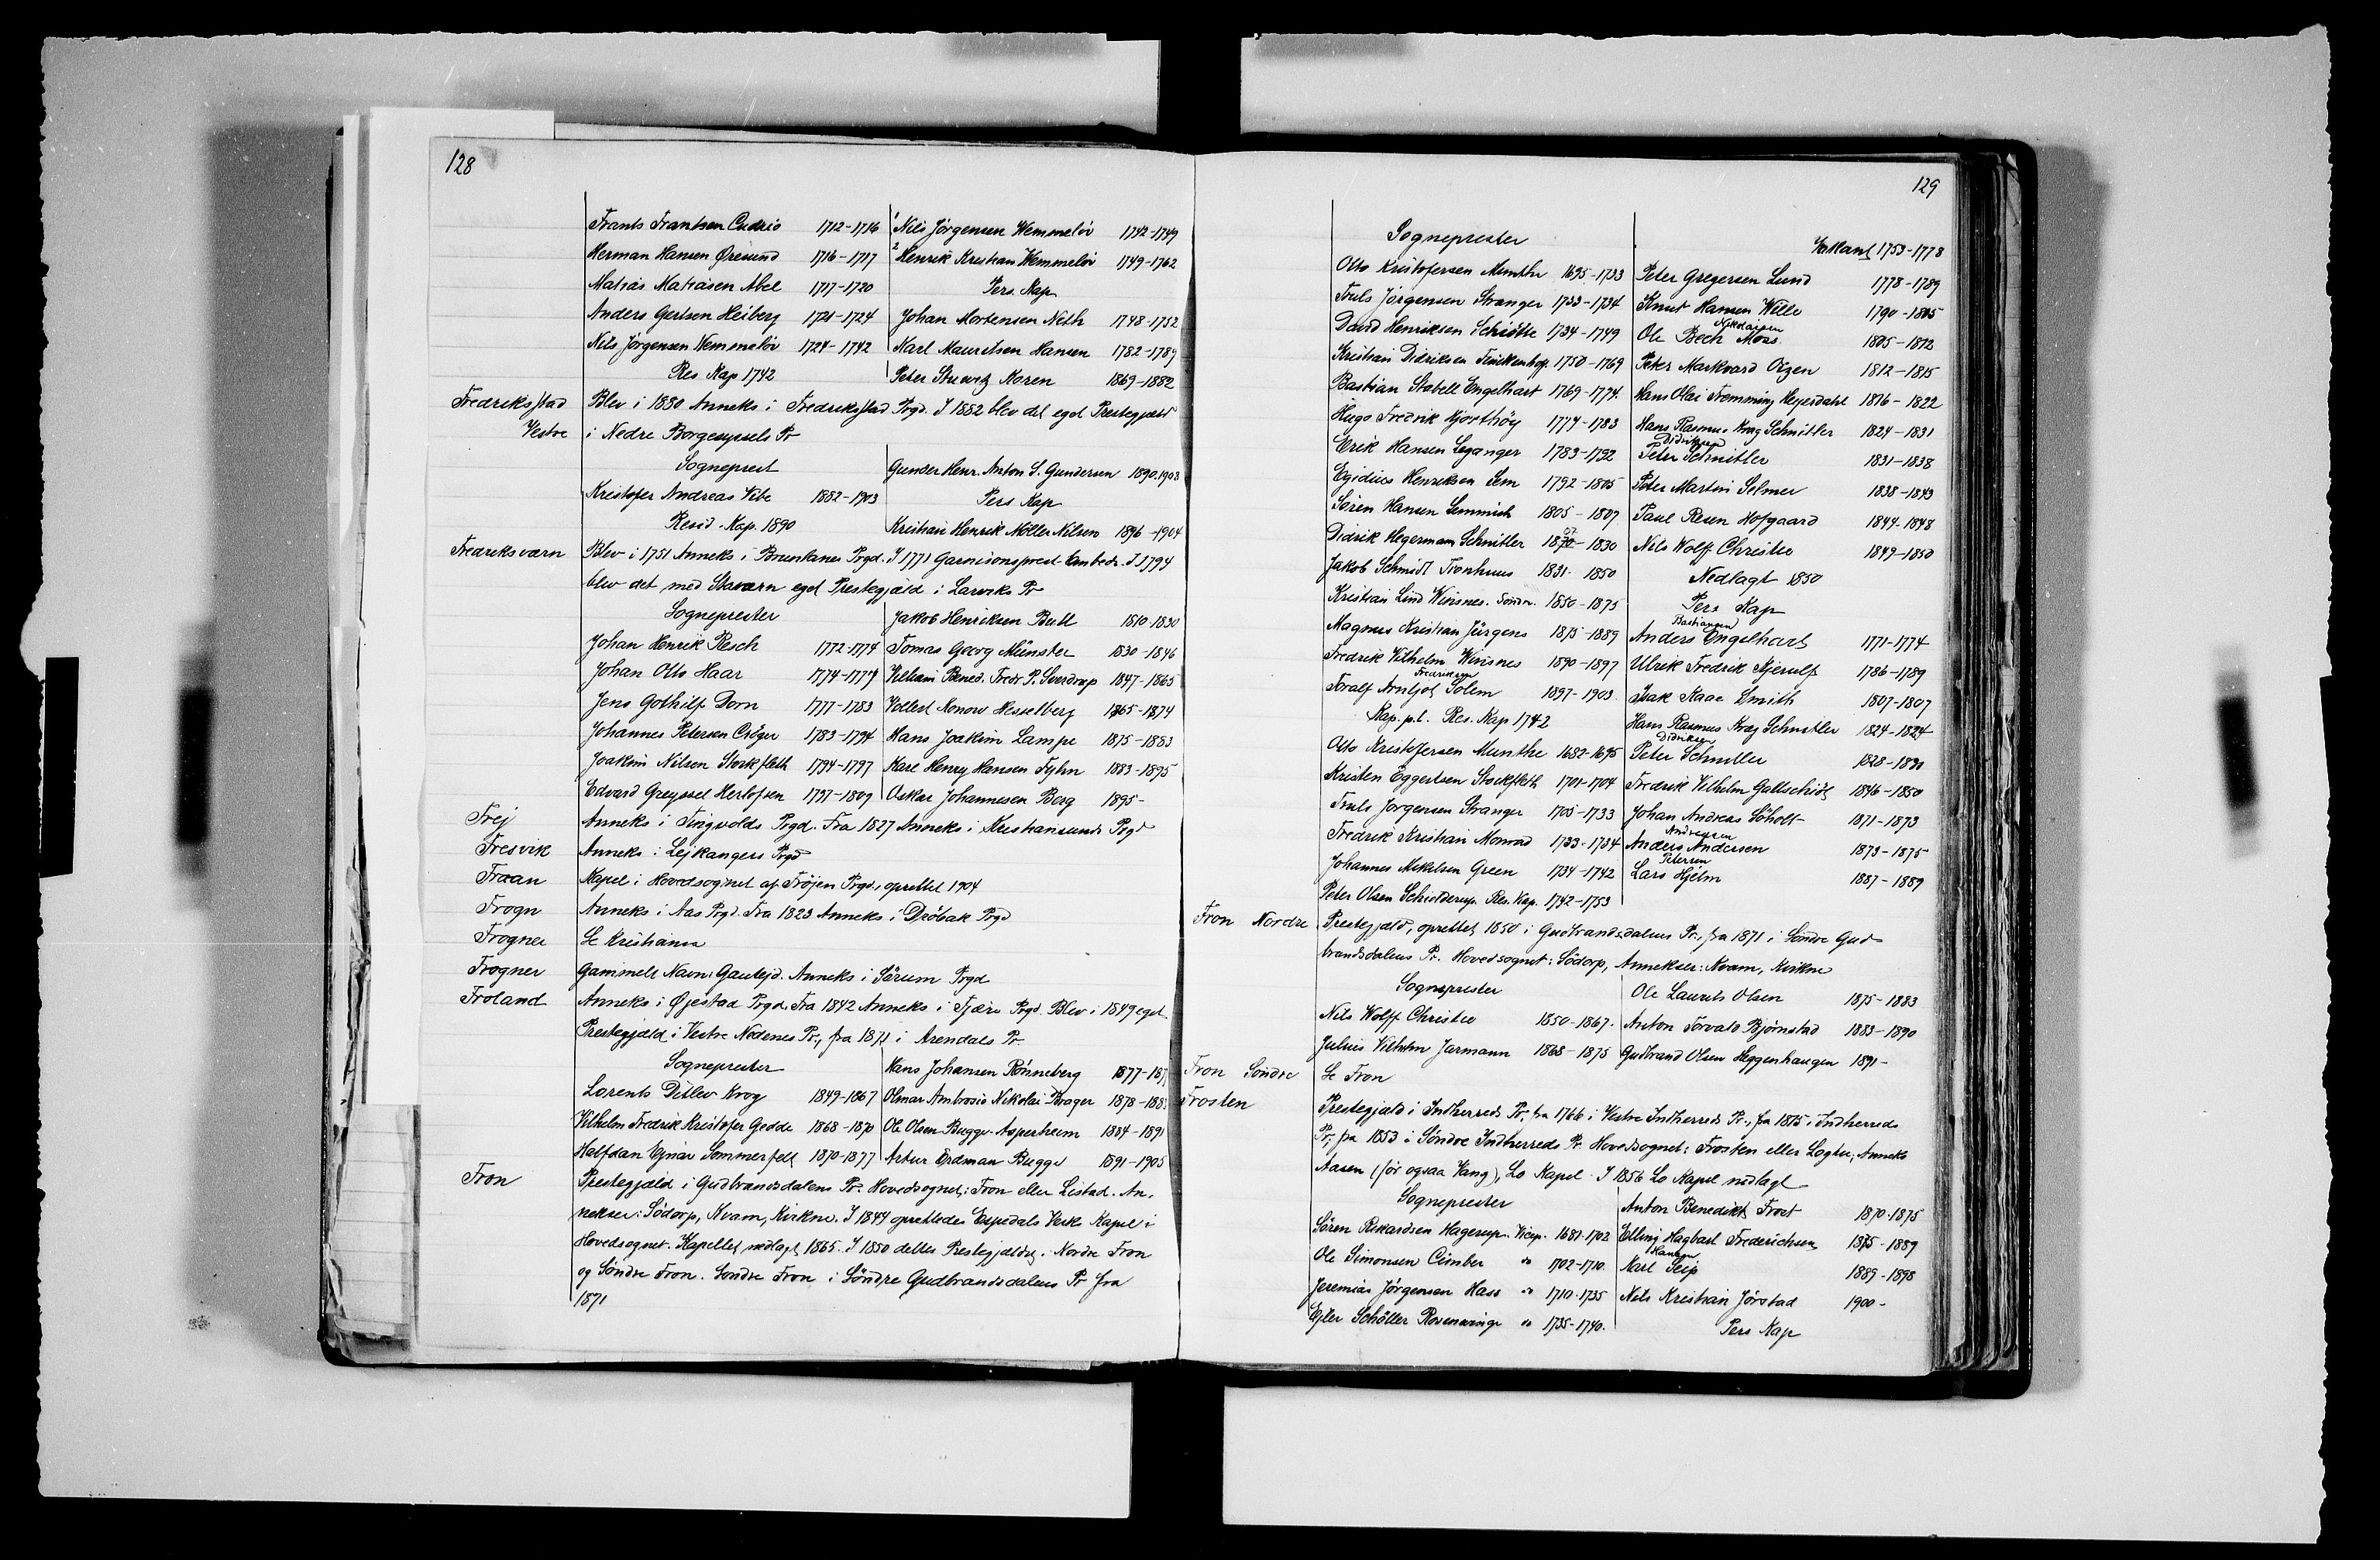 128
Frants Frantsen Cudrio 1712-1716
Herman Hansen Øresund 1716-1717
Matias Matiasen Abel 1717-1720
Anders Gertsen Heiberg 1721-1724
Nils Jörgensen Wemmelöv 1724-1742
Res. Kap 1742
1 Nils Jörgensen Wemmelöv 1742-1749
2 Henrik Kristian Wemmelöv 1749-1762
Pers. Kap
Johan Mortensen Neth 1748-1752
Karl Mauritsen Hansen 1782-1789
Peter Koren 1869-1882
Fredriksstad Vestre
Blev i 1830 Anneks i Fredriksstad Prgd. I 1882 blev det eget Prestegjæld
i Nedre Borgesyssels Pr
Sogneprest
Kristofer Andreas Vibe 1882-1903
Resid. Kap. 1890
Gunder Henr. Anton S. Gundersen 1890.1908
Pers Kap
Kristian Henrik Möller Nilsen 1896-1904
Fredriksværn
Blev i 1751 Anneks i Brunlanes Prgd. I 1771 Garnisonsprest-Embede. I 1794
blev det med Staværn eget Prestegjæld i Larviks Pr
Sogneprester
Johan Henrik Resch 1772-1774
Johan Otto Haar 1774-1777
Jens Gothilf Dorn 1777-1783
Johannes Petersen Cröger 1783-1794
Joakim Nilsen Stockfleth 1794-1797
Edvard Greyssel Herlofsen 1797-1809
Jakob Henriksen Bull 1810-1830
Tomas Georg Münster 1830-1846
Vilhelm Bened. Fredr. P. Sverdrup 1847-1865
Vollert Konow Hesselberg 1865-1874
Hans Joakim Lampe 1875-1883
Karl Henry Hansen Fyhn 1883-1895
Oskar Johannesen Berg 1895-
Frej Anneks i Tingvolds Prgd. Fra 1827 Anneks i Kristiansunds Prgd
Fresvik Anneks i Lejkangers Prgd
Fraan Kapel i Hovedsognet af Fröjen Prgd., oprettet 1904
Frogn Anneks i Aas Prgd. Fra 1823 Anneks i Dröbak Prgd
Frogner Se Kristiania
Frogner Gammelt Navn: Gautejd. Anneks i Sörum Prgd
Froland Anneks i Øjestad Prgd. Fra 1842 Anneks i Fjære Prgd. Blev i 1849 eget
Prestegjæld i Vestre Nedenes Pr., fra 1871 i Arendals Pr.
Sogneprester
Lorents Ditlev Krog 1849-1867
Vilhelm Fredrik Kristofer Gedde 1868-1870
Halfdan Ejnar Sommerfelt 1870-1877
Hans Johansen Rönneberg 1877-187
Olmar Ambrosio Nikolai Brager 1878-188
Ole Olsen Bugge-Asperheim 1884-1891
Artur Erdman Bugge 1891-1905
Fron Prestegjæld i Gudbrandsdalens Pr. Hovedsognet: Fron eller Listad. An-
nekser: Södorp, Kvam, Kvikne. I 1844 oprettedes Espedals Verks Kapel i
Hovedsognet. Kapellet nedlagt 1865. I 1850 deltes Prestegjældet i Nordre Fron
og Söndre Fron. Sondre Fron i Söndre Gudbrandsdalens Pr fra
1871
129
Sogneprester
Otto Kristofersen Munthe 1695-1733
Truls Jörgensen Stranger 1733-1734
David Henriksen Schiötte 1734-1749
Kristian Didriksen Finckenhof 1750-1769
Bastian Stabell Engelhart 1769-1774
Hugo Fredrik Hjorthöy 1774-1783
Erik Hansen Leganger 1783-1792
Egidius Henriksen Lem 1792-1805
Sören Hansen Lemmich 1805-1807
Didrik Hegermann Schnitler 1807-1830
Jakob Schmidt Tronhuus 1831-1850
Kristian Lind Wisnes. Söndre. 1850-1875
Magnus Kristian Jürgens 1875-1889
Fredrik Vilhelm Winsnes 1890-1897
Fredriksen
Toralf Arnljot Solem 1897-1903
Kap. p.l. Res. Kap 1742
Otto Kristofersen Munthe 1682-1695
Kristen Eggertsen Stockfleth 1701-1704
Truls Jorgensen Stranger 1705-1733
Fredrik Kristian Monrad 1733-1734
Johannes Mikkelsen Green 1734-1742
Peter Olsen Schiölderup. Res. Kap. 1742-1753
1753-1778
Peter Gregersen Lund 1778-1789
Knut Hansen Wille 1790-1805
Nikolaisen
Ole Bech Moss 1805-1812
Peter Markvard Otzen 1812-1815
Hans Olai Fremming Heyerdahl 1816-1822
Hans Rasmus Krag Schnitler 1824-1831
Didriksen
Peter Schnitler 1831-1838
Peter Martin Selmer 1838-1843
Paul Resen Hofgaard 1844-1848
Nils Wolff Christie 1849-1850
Nedlagt 1850
Pers Kap
Bastiansen
Anders Engelhart 1771-1774
Ulrik Fredrik Kjerulf 1786-1789
Isak Staae Smith 1807-1807
Hans Rasmus Krag Schnitler 1824-1824
Didriksen
Peter Schnitler 1828-1831
Fredrik Vilhelm Gottschidt 1846-1850
Johan Andreas Söholt 1871-1873
Andersen
Anders Andersen 1873-1875
Petersen
Lars Hjelm 1887-1889
Fron Nordre Prestegjæld, oprettet 1850 i Gudbrandsdalens Pr., fra 1871 i Söndre Gud-
brandsdalens Pr. Hovedsognet: Södorp, Annekser: Kvam, Kvikne
Sogneprester
Nils Wolff Christie 1850-1867.
Julius Vilhelm Jarmann 1868-1875
Ole Laurits Olsen 1875-1883
Anton Torvald Bjørnstad 1883-1890
Gudbrand Olsen Heggenhaugen 1891-
Fron Söndre Se Fron
Frosten Prestegjæld i Indherreds Pr., fra 1766 i Vestre Indherreds Pr., fra 1815 i Indherreds
Pr., fra 1853 i Söndre Indherreds Pr. Hovedsognet: Frosten eller Logtu, Anneks
Aasen (för ogsaa Vang), Lo Kapel. I 1856 Lo Kapel nedlagt
Sogneprester
Sören Rikardsen Hagerup. Vicep. 1681-1702
Ole Simonsen Cimber do 1702-1710
Jeremias Jörgensen Hass do 1710-1735
Ejler Schöller Rosenvinge do 1735-1740.
Anton Benedikt Frost 1870-1875
Elling Hagbart Frederichsen 1875-1889
Hansen
Karl Seip 1889-1898
Nils Kristian Jörstad 1900-
Pers Kap